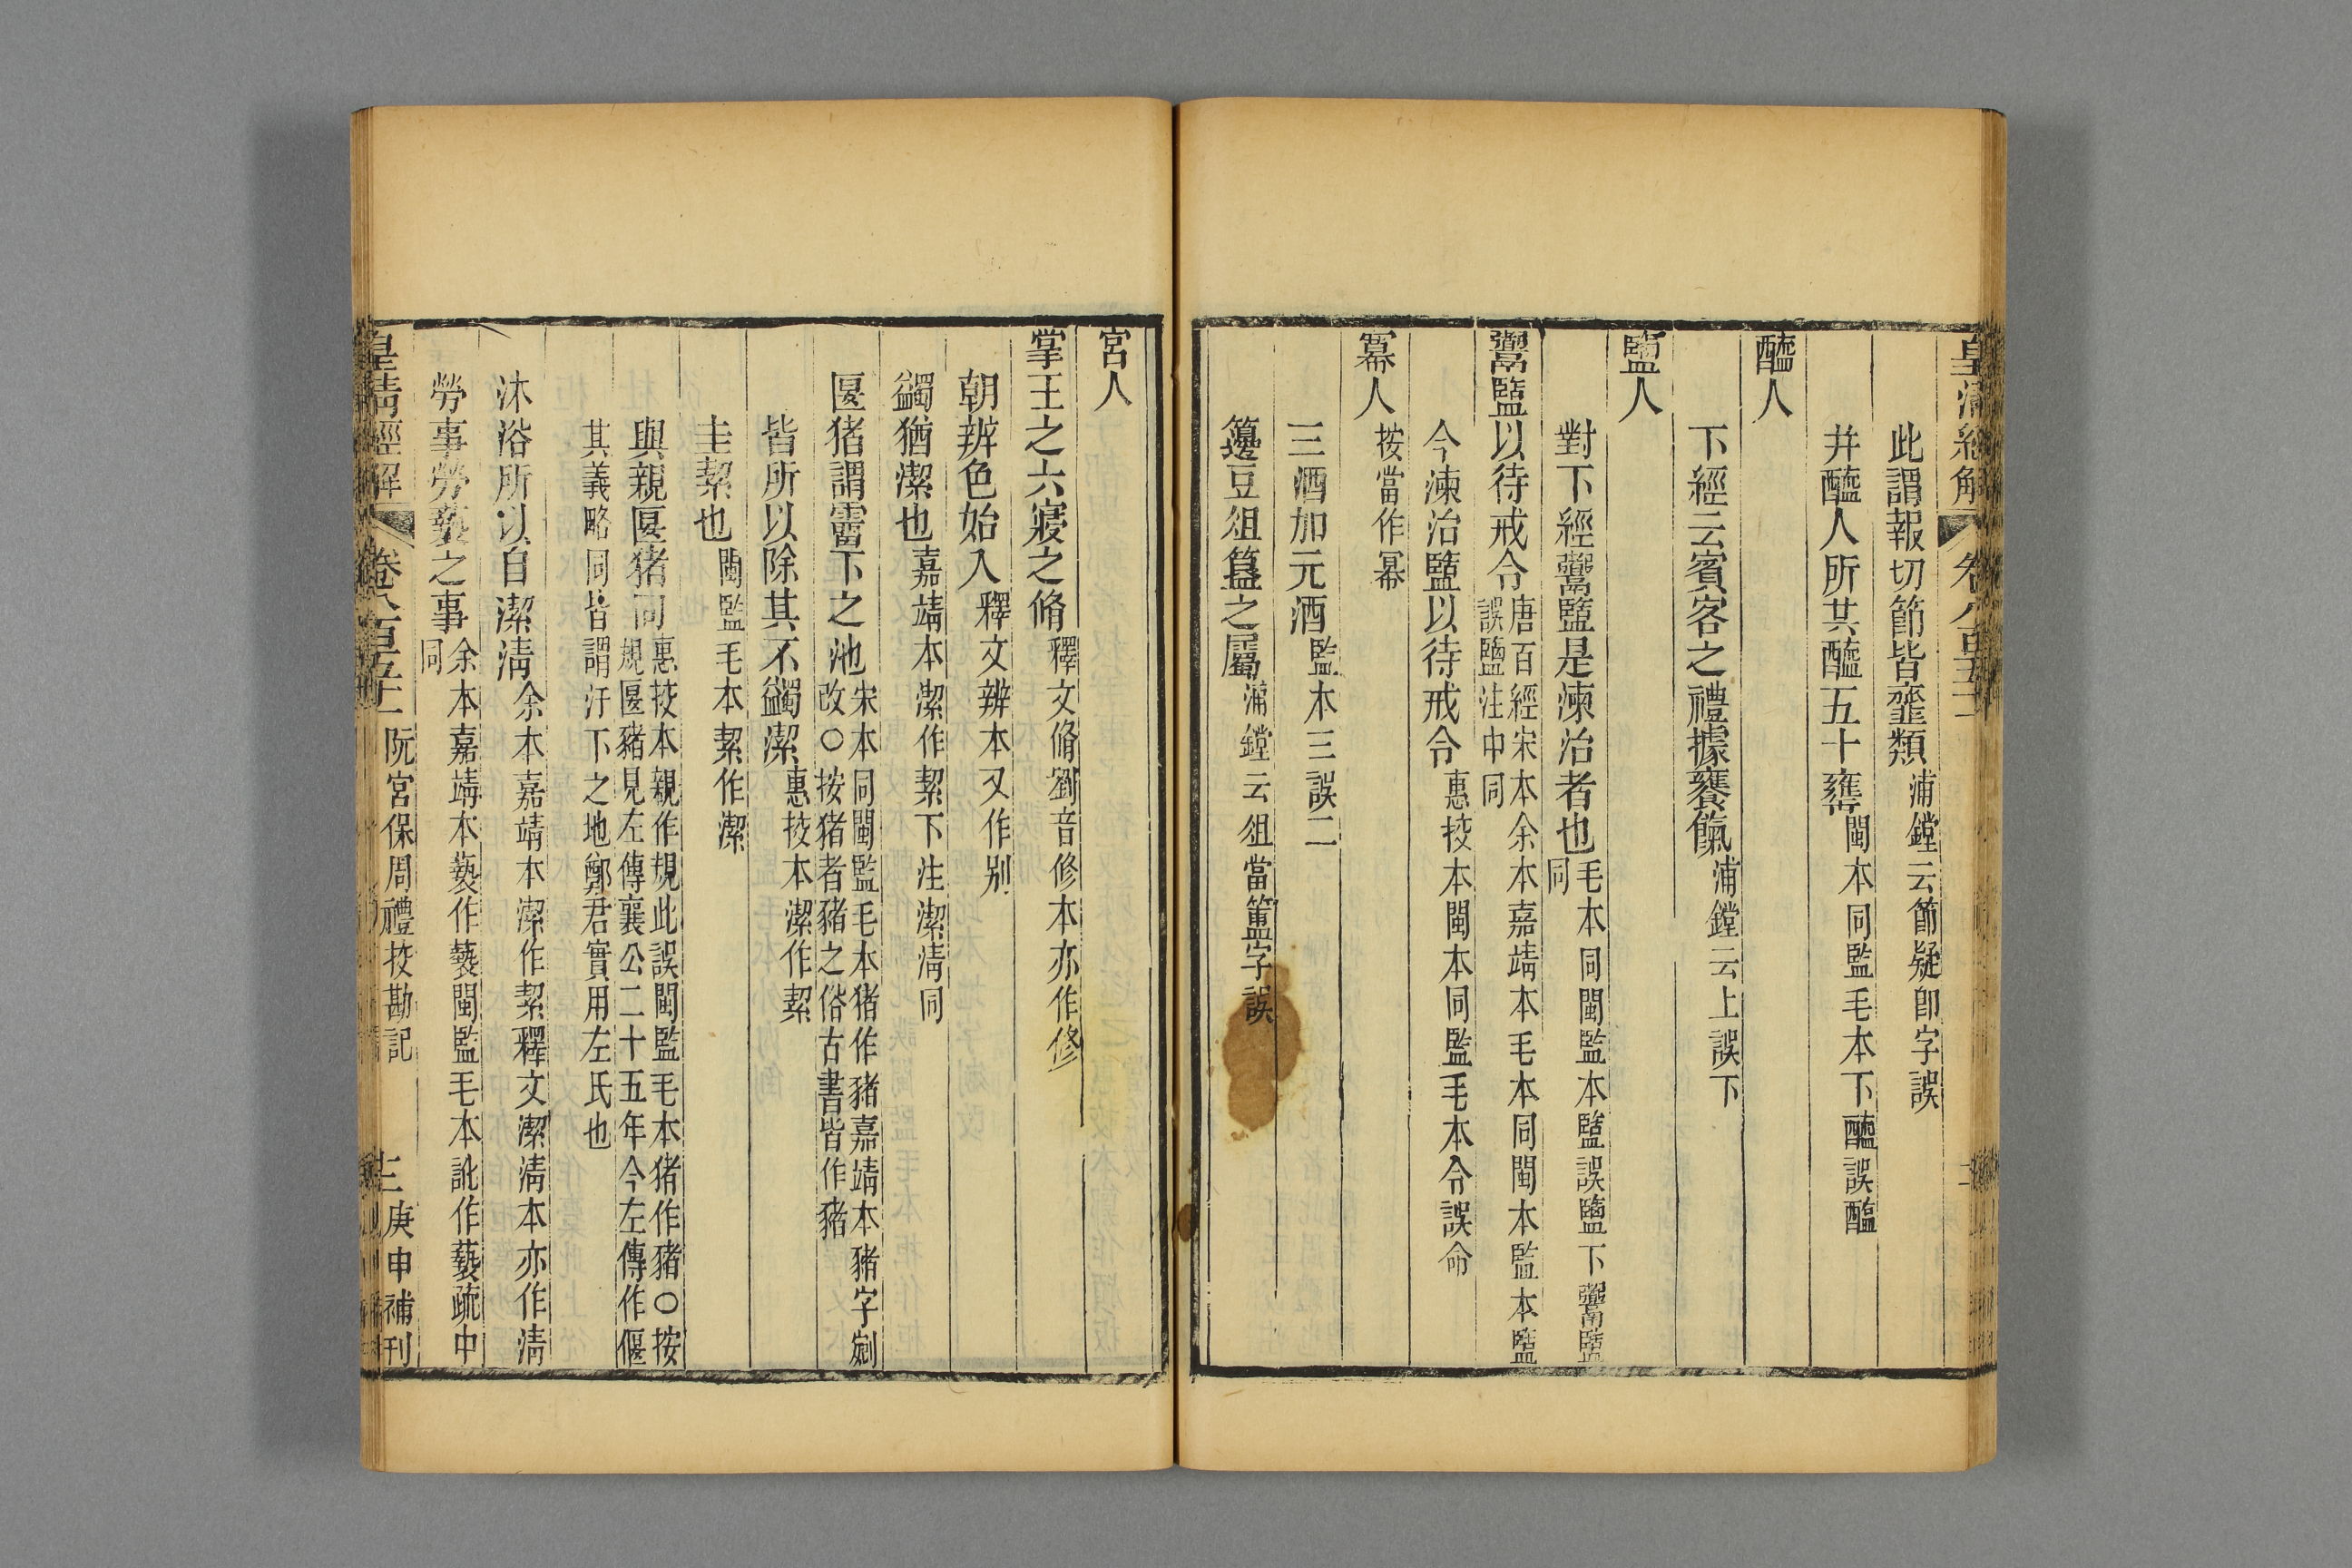 皇清經解 卷八百五十一
此謂報切節皆韲類浦鏜云節疑卽字誤
并醯人所共醯五十罋閩本同監毛本下醯誤醢
醯人
下經云賓客之禮據饔餼浦鏜云上誤下
鹽人
對下經鬻盬是湅治者也毛本同閩監本盬誤鹽下鬻盬同
鬻盬以待戒令唐石經宋本余本嘉靖本毛本同閩本監本盬誤鹽注中同
今湅治鹽以待戒令惠挍本閩本同監毛本令誤命
冪人
按當作幂
三酒加元酒監本三誤二
籩豆俎簋之屬浦鏜云俎當簠字誤
宮人
掌王之六寢之脩釋文脩劉音修本亦作修
朝辨色始入釋文辨本又作别
蠲猶潔也嘉靖本潔作絜下注潔淸同
匽猪謂霤下之池宋本同閩監毛本猪作豬嘉靖本豬字剜改○按猪者豬之俗古書皆作豬
皆所以除其不蠲潔惠挍本潔作絜
圭絜也閩監毛本絜作潔
與親匽猪同惠挍本親作規此誤閩監毛本猪作豬○按規匽豬見左傳襄公二十五年今左傳作偃
其義略同皆謂汙下之地鄭君實用左氏也
沐浴所以自潔淸余本嘉靖本潔作絜釋文潔淸本亦作淸
勞事勞褻之事余本嘉靖本褻作䙝閩監毛本訛作藝疏中同
皇淸經解 卷八百五十一 阮宮保周禮挍勘記 庚申補刊